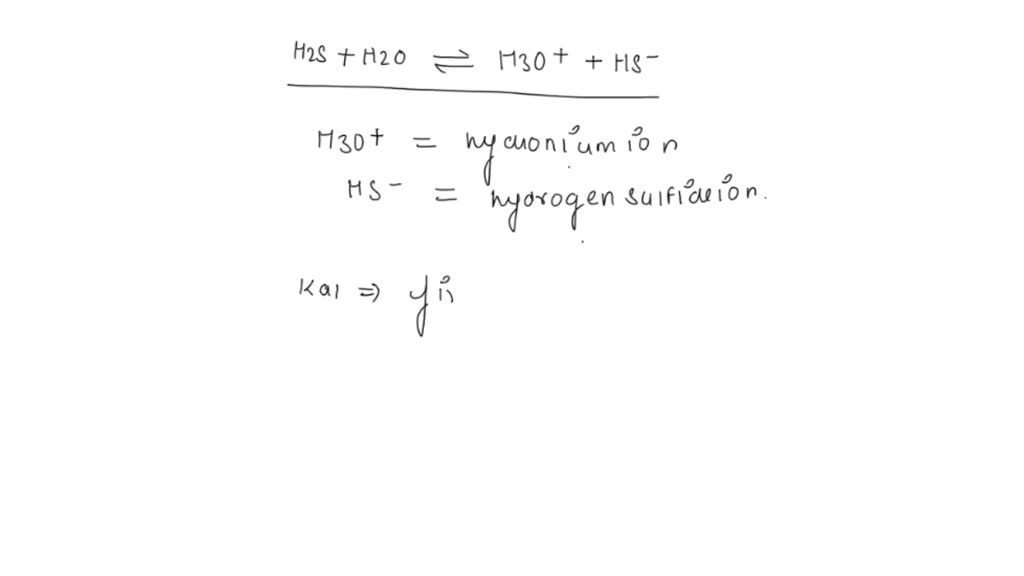 H2S + H2O ⇌ H3O+ + HS-
H3O+ = hydronium ion
HS- = hydrogen sulfide ion.
Ka1 ⇒